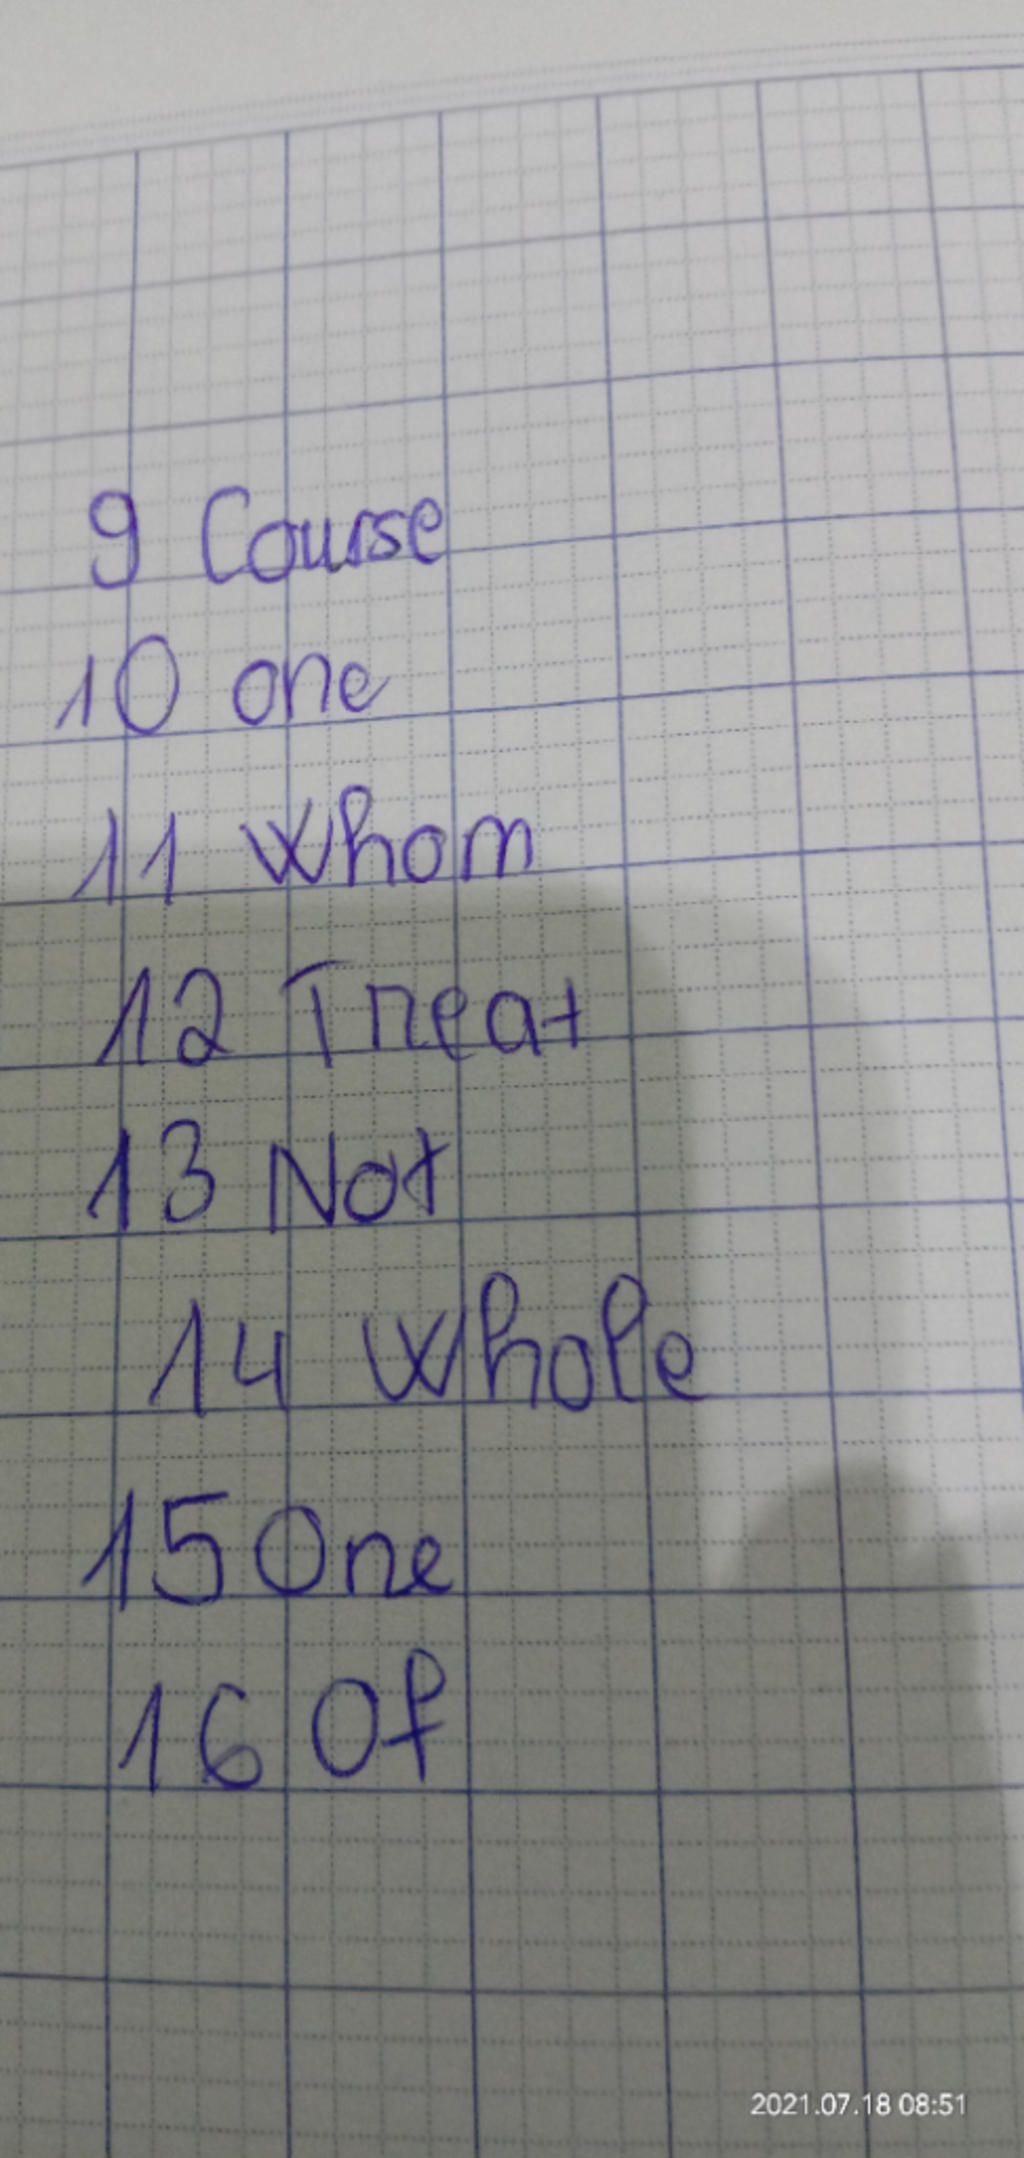 9 Course
10 one
11 whom
12 Treat
13 Not
14 whole
15 One
16 Of
2021.07.18 08:51